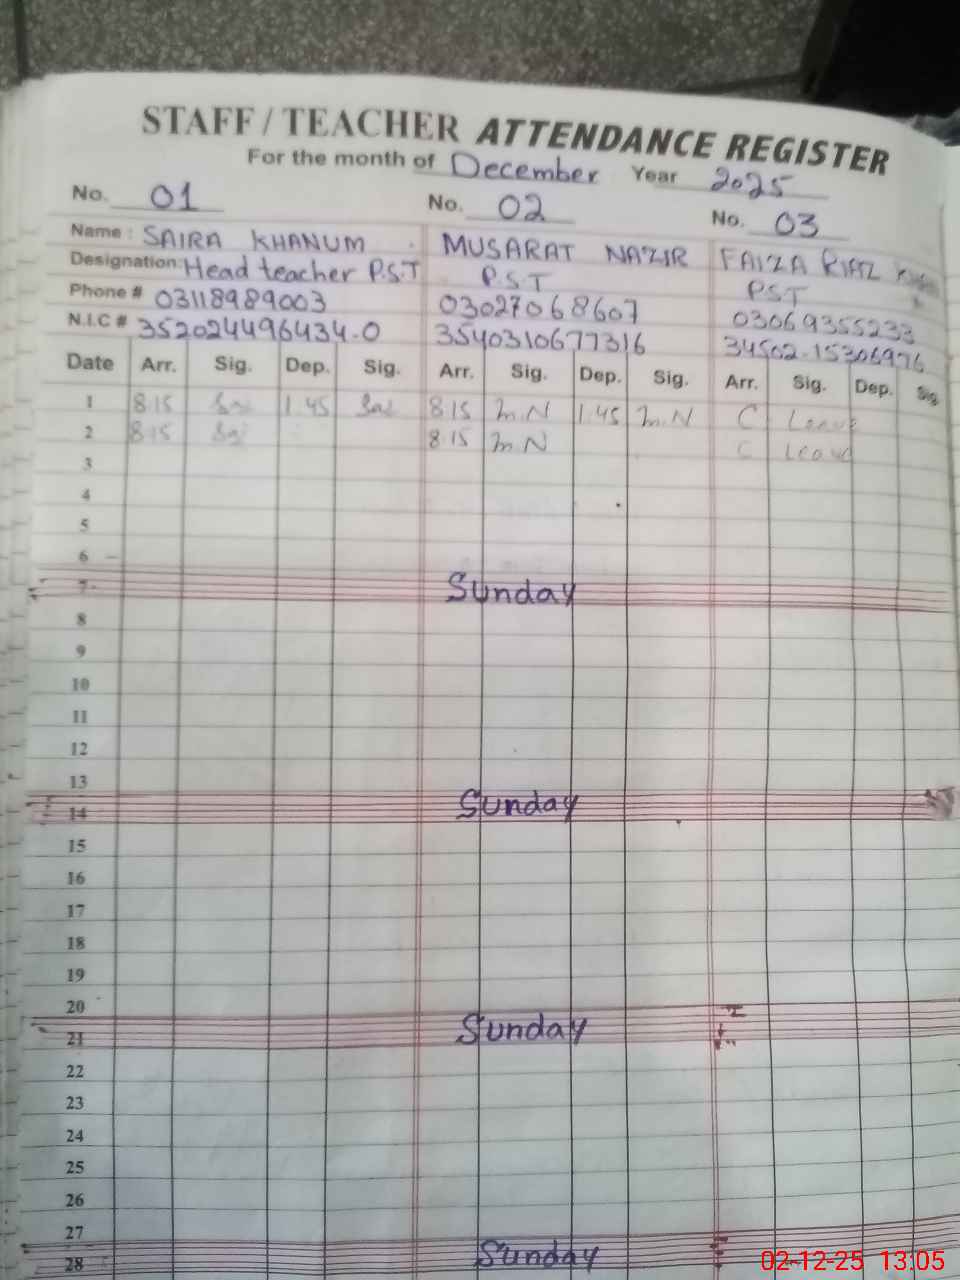 STAFF / TEACHER ATTENDANCE REGISTER
For the month of December Year 2025
No. 01 No. 02 No. 03
Name : SAIRA KHANUM MUSARAT NAZIR FAIZA RIAZ
Designation: Head teacher P.S.T P.S.T PST
Phone # 03118989003 03027068607 03069355233
N.I.C # 352024496434-0 3540310677316 34502-15306976
Date Arr. Sig. Dep. Sig. Arr. Sig. Dep. Sig. Arr. Sig. Dep. Sig
1 8:15 Sai 1:45 Sai 8:15 M.N 1:45 M.N C Leave
2 8:15 Sai 8:15 M.N C Leave
3
4
5
6
7 Sunday
8
9
10
11
12
13
14 Sunday
15
16
17
18
19
20
21 Sunday
22
23
24
25
26
27
28 Sunday
02-12-25 13:05